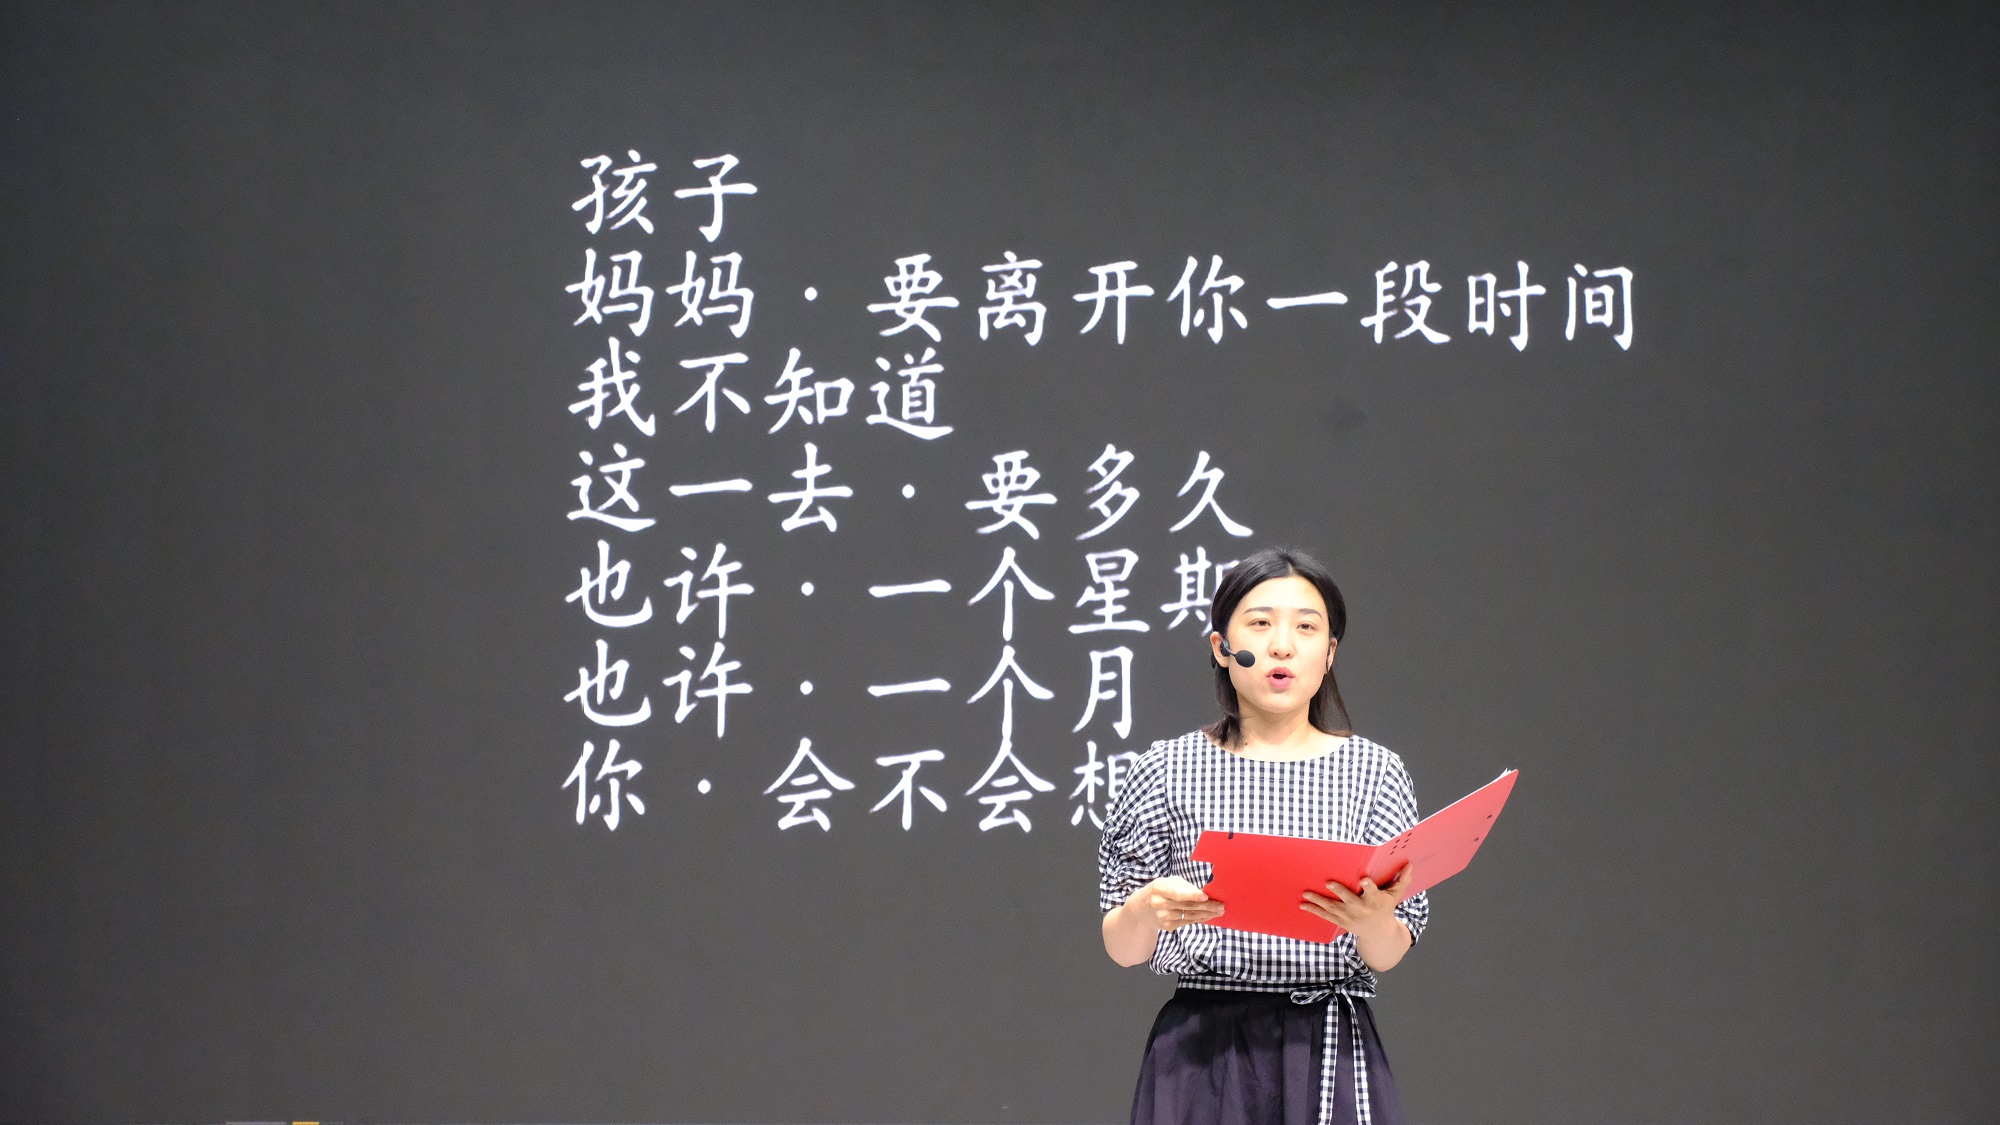 孩子
妈妈·要离开你一段时间
我不知道
这一去·要多久
也许·一个星期
也许·一个月
你·会不会想